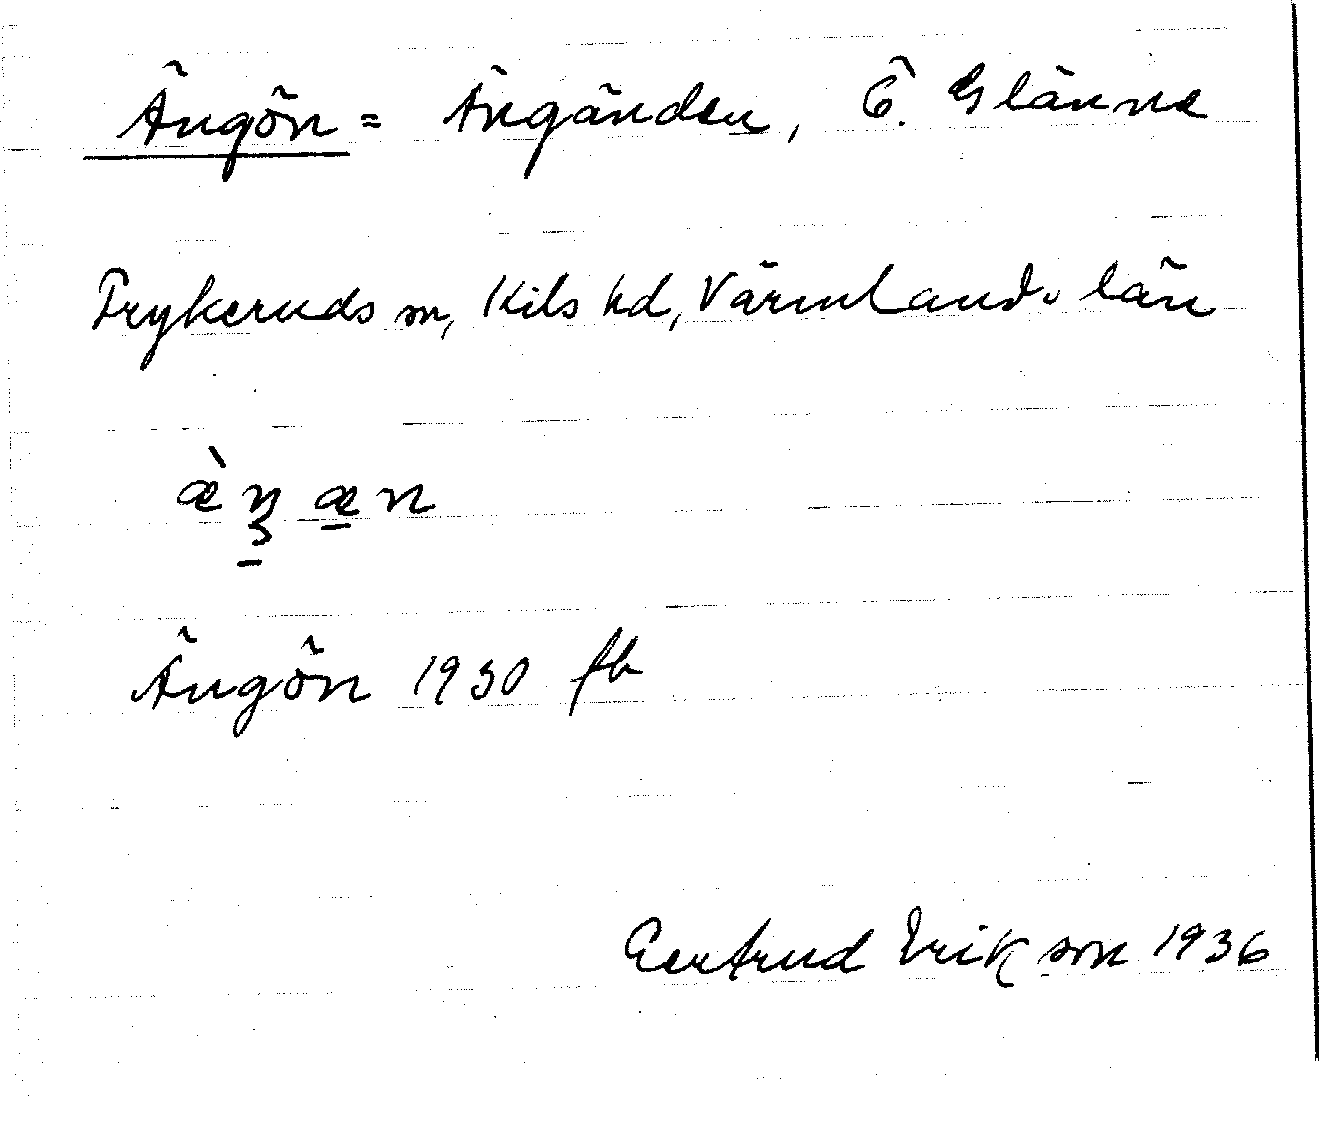 Ängön = Ängänden, Ö. Glänne
Frykeruds sn, Kils hd, Värmlands län
æ̀ŋæ̠n
Ängön 1930 fb
Gertrud Erikson 1936